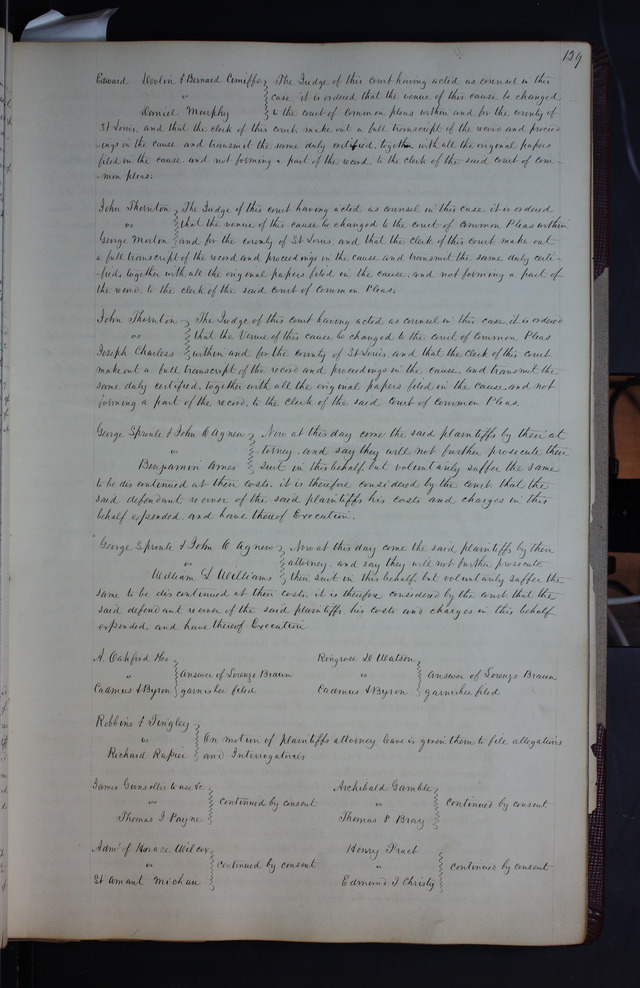 129
Edward &amp; Bernard The Judge of this court having acted as counsel in this
vs case, it is ordered that the venue of this cause be changed
Daniel Murphy to the court of common pleas within and for the county of
St Louis, and that the clerk of this court, make out a full transcript of the record and proceed-
-ings in the cause and transmit the same duly certified, together with all the original papers
filed in the cause and not forming a part of the record to the clerk of the said court of com-
-mon pleas.
John Thornton The Judge of this court having acted as counsel in this case it is ordered
vs that the venue of this cause be changed to the court of Common Pleas within
George Morton and for the county of St Louis, and that the clerk of this court make out
a full transcript of the record and proceedings in the cause and transmit the same duly certi-
-fied, together with all the original papers filed in the cause, and not forming a part of
the record, to the clerk of the said court of Common Pleas.
John Thornton The Judge of this court having acted as counsel in this case, it is ordered
vs that the Venue of this cause be changed to the court of Common Pleas
Joseph Charless within and for the county of St Louis, and that the clerk of this court
make out a full transcript of the record and proceedings in the cause, and transmit the
same duly certified, together with all the original papers filed in the cause, and not
forming a part of the record, to the clerk of the said Court of Common Pleas.
George Sproule &amp; John C Agnew Now at this day come the said plaintiffs by their at
vs torney, and say they will not further prosecute their
Benjamin Ames suit in this behalf, but voluntarily suffer the same
to be discontinued at their costs, it is therefore considered by the court, that the
said defendant recover of the said plaintiffs his costs and charges in this
behalf expended, and have thereof Execution.
George Sproule &amp; John C Agnew Now at this day come the said plaintiffs by their
vs attorney, and say they will not further prosecute
William S Williams their suit in this behalf, but voluntarily suffer the
same to be discontinued at their costs, it is therefore considered by the court, that the
said defendant recover of the said plaintiffs, his costs and charges in this behalf
expended, and have thereof Execution
A. Oakford &amp;Co Ringrose D Watson
vs Answer of Lorenzo Braun vs Answer of Lorenzo Braun
Cadmus &amp; Byron garnishee filed Cadmus &amp; Byron garnishee filed
Robbins &amp; Tingley
vs On motion of plaintiffs attorney leave is given them to file allegations
Richard and Interrogatories
James to use &amp;c Archibald Gamble
vs continued by consent vs continued by consent
Thomas J Payne Thomas P Bray
Admr of Horace Wilcox Henry
vs continued by consent vs continued by consent
St Amant Michau Edmund J Christy